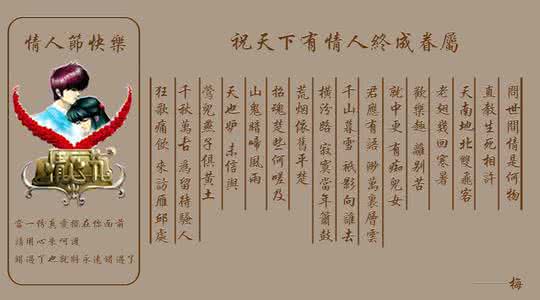 情人節快樂
當一份真愛擺在你面前
請用心來呵護
錯過了也就將永遠錯過了
祝天下有情人終成眷屬
問世間情是何物
直教生死相許
天南地北雙飛客
老翅幾回寒暑
歡樂趣 離別苦
就中更 有痴兒女
君應有語 渺萬裏層雲
千山暮雪 衹影向誰去
橫汾路 寂寞當年簫鼓
荒煙依舊平楚
招魂楚些何嗟及
山鬼暗啼風雨
天也妒 未信與
鶯兒燕子俱黃土
千秋萬古 為留待騷人
狂歌痛飲 來訪雁邱處
——梅